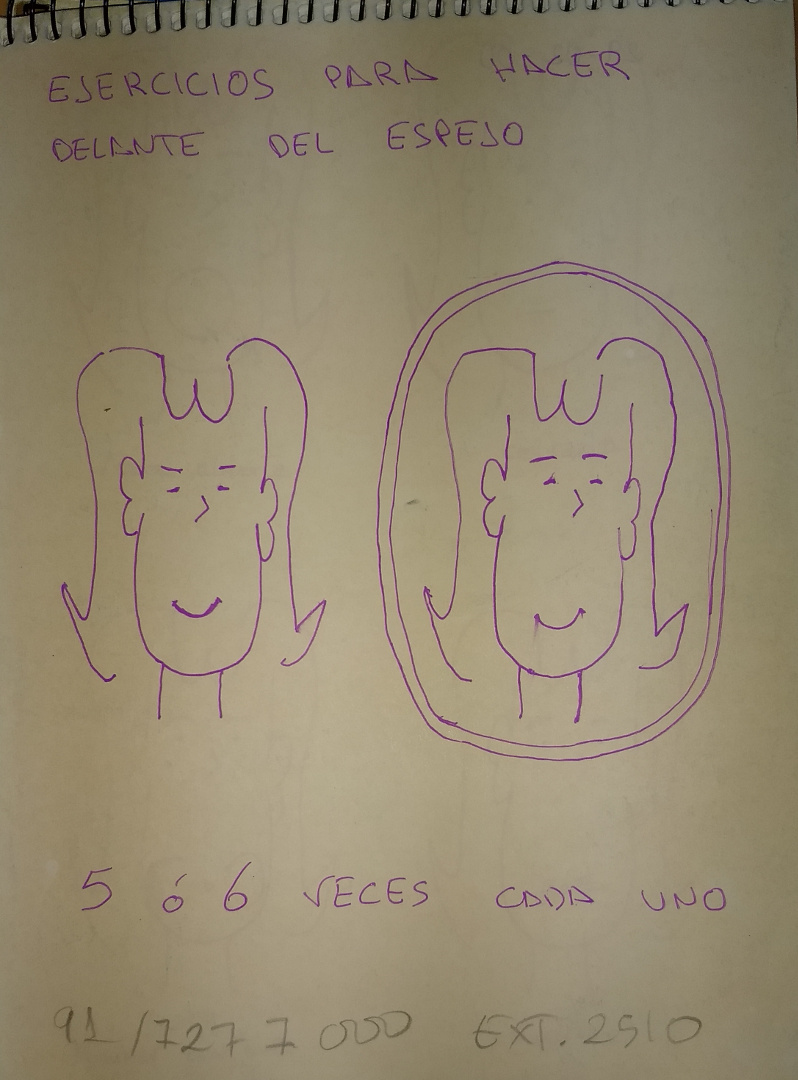 EJERCICIOS PARA HACER
DELANTE DEL ESPEJO
5 ó 6 VECES CADA UNO
91/7277000 EXT. 2510